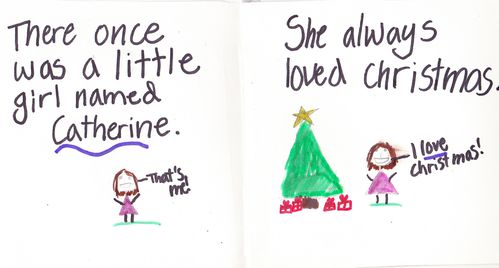 There once
was a little
girl named
Catherine.
That's
me!
She always
loved christmas.
I love
christmas!